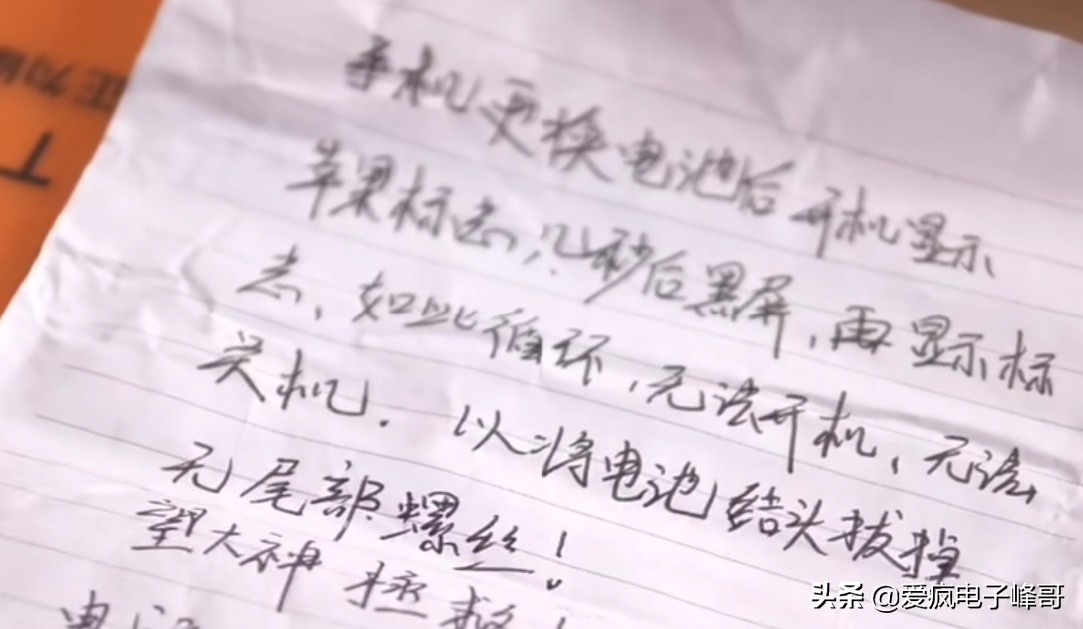 手机更换电池后开机显示
苹果标志,几秒后黑屏,再显示标
志,如此循环,无法开机,无法
关机.以将电池结头拔掉
无尾部螺丝!
望大神拯救!
电
正为
头条 @爱疯电子峰哥